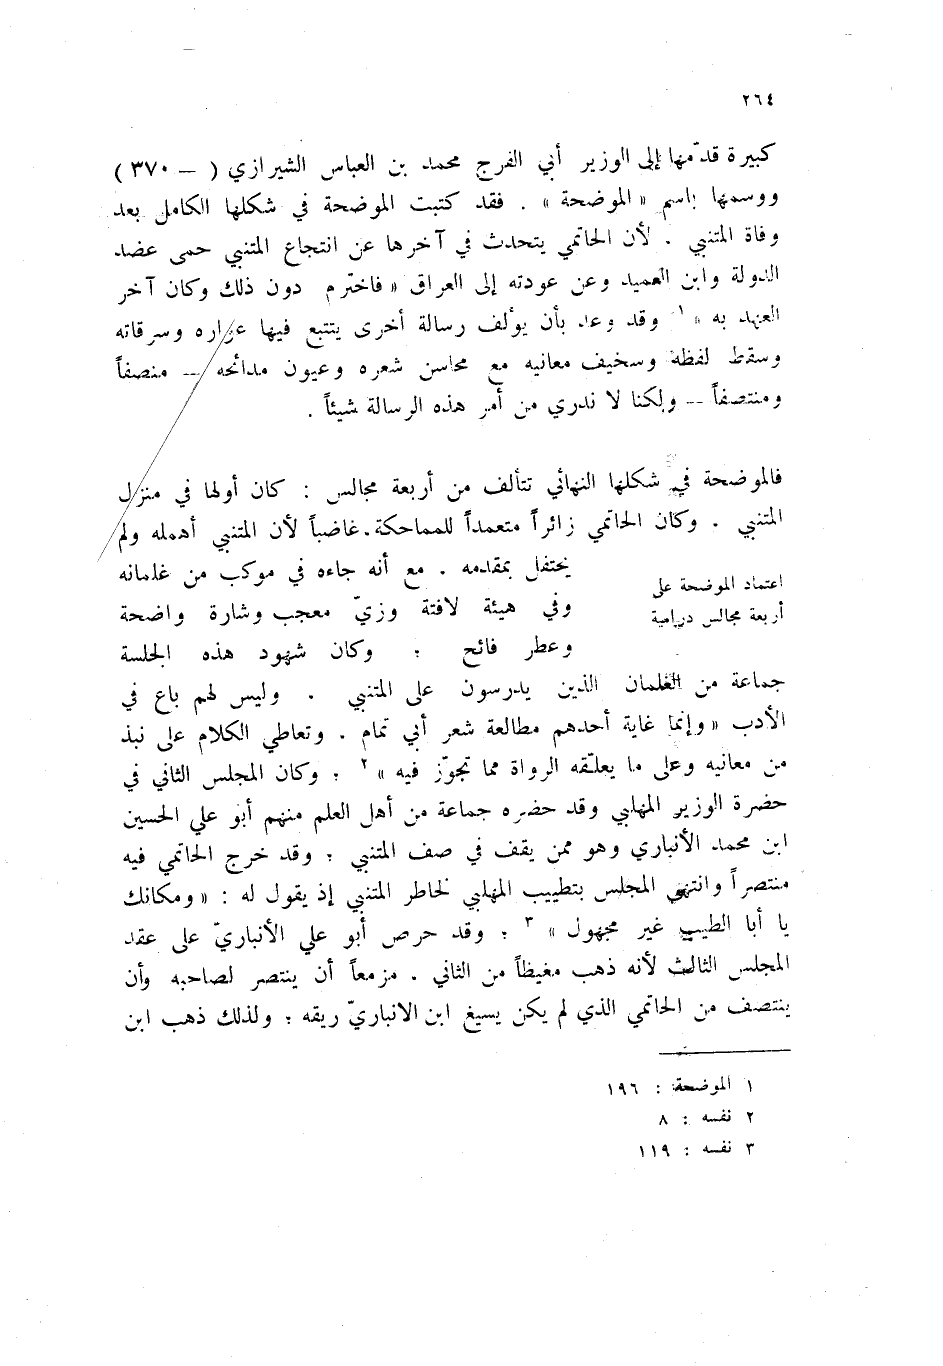 ٢٦٤
كبيرة قدّمها إلى الوزير أبي الفرج محمد بن العباس الشيرازي ( – ٣٧٠ )
ووسمها باسم « الموضحة » . فقد كتبت الموضحة في شكلها الكامل بعد
وفاة المتنبي . لأن الحاتمي يتحدث في آخرها عن انتجاع المتنبي حمى عضد
الدولة وابن العميد وعن عودته إلى العراق « فاخترم دون ذلك وكان آخر
العهد به » ١ وقد وعد بأن يؤلف رسالة أخرى يتتبع فيها عواره وسرقاته
وسقط لفظه وسخيف معانيه مع محاسن شعره وعيون مدائحه – منصفاً
ومنتصفاً – ولكنا لا ندري من أمر هذه الرسالة شيئاً .
فالموضحة في شكلها النهائي تتألف من أربعة مجالس : كان أولها في منزل
المتنبي . وكان الحاتمي زائراً متعمداً للمماحكة . غاضباً لأن المتنبي أهمله ولم
يحتفل بمقدمه . مع أنه جاءه في موكب من غلمانه
اعتماد الموضحة على
وفي هيئة لافتة وزيّ معجب وشارة واضحة
أربعة مجالس درامية
وعطر فائح ؛ وكان شهود هذه الجلسة
جماعة من الغلمان الذين يدرسون على المتنبي . وليس لهم باع في
الأدب « وإنما غاية أحدهم مطالعة شعر أبي تمام . وتعاطي الكلام على نبذ
من معانيه وعلى ما يعلّقه الرواة مما تجوّز فيه » ٢ ؛ وكان المجلس الثاني في
حضرة الوزير المهلبي وقد حضره جماعة من أهل العلم منهم أبو علي الحسين
ابن محمد الأنباري وهو ممن يقف في صف المتنبي ؛ وقد خرج الحاتمي فيه
منتصراً وانتهى المجلس بتطييب المهلبي لخاطر المتنبي إذ يقول له : « ومكانك
يا أبا الطيب غير مجهول » ٣ ؛ وقد حرص أبو علي الأنباريّ على عقد
المجلس الثالث لأنه ذهب مغيظاً من الثاني . مزمعاً أن ينتصر لصاحبه وأن
ينتصف من الحاتمي الذي لم يكن يسيغ ابن الانباريّ ريقه ؛ ولذلك ذهب ابن
١ الموضحة : ١٩٦
٢ نفسه : ٨
٣ نفسه : ١١٩